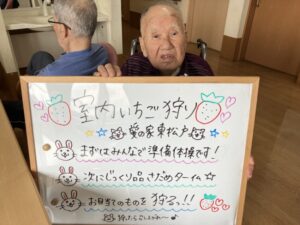 室内いちご狩り
愛の家東松戸
まずはみんなで準備体操です!
次にじっくり品さだめターイム☆
お目当てのものを狩るっ!!